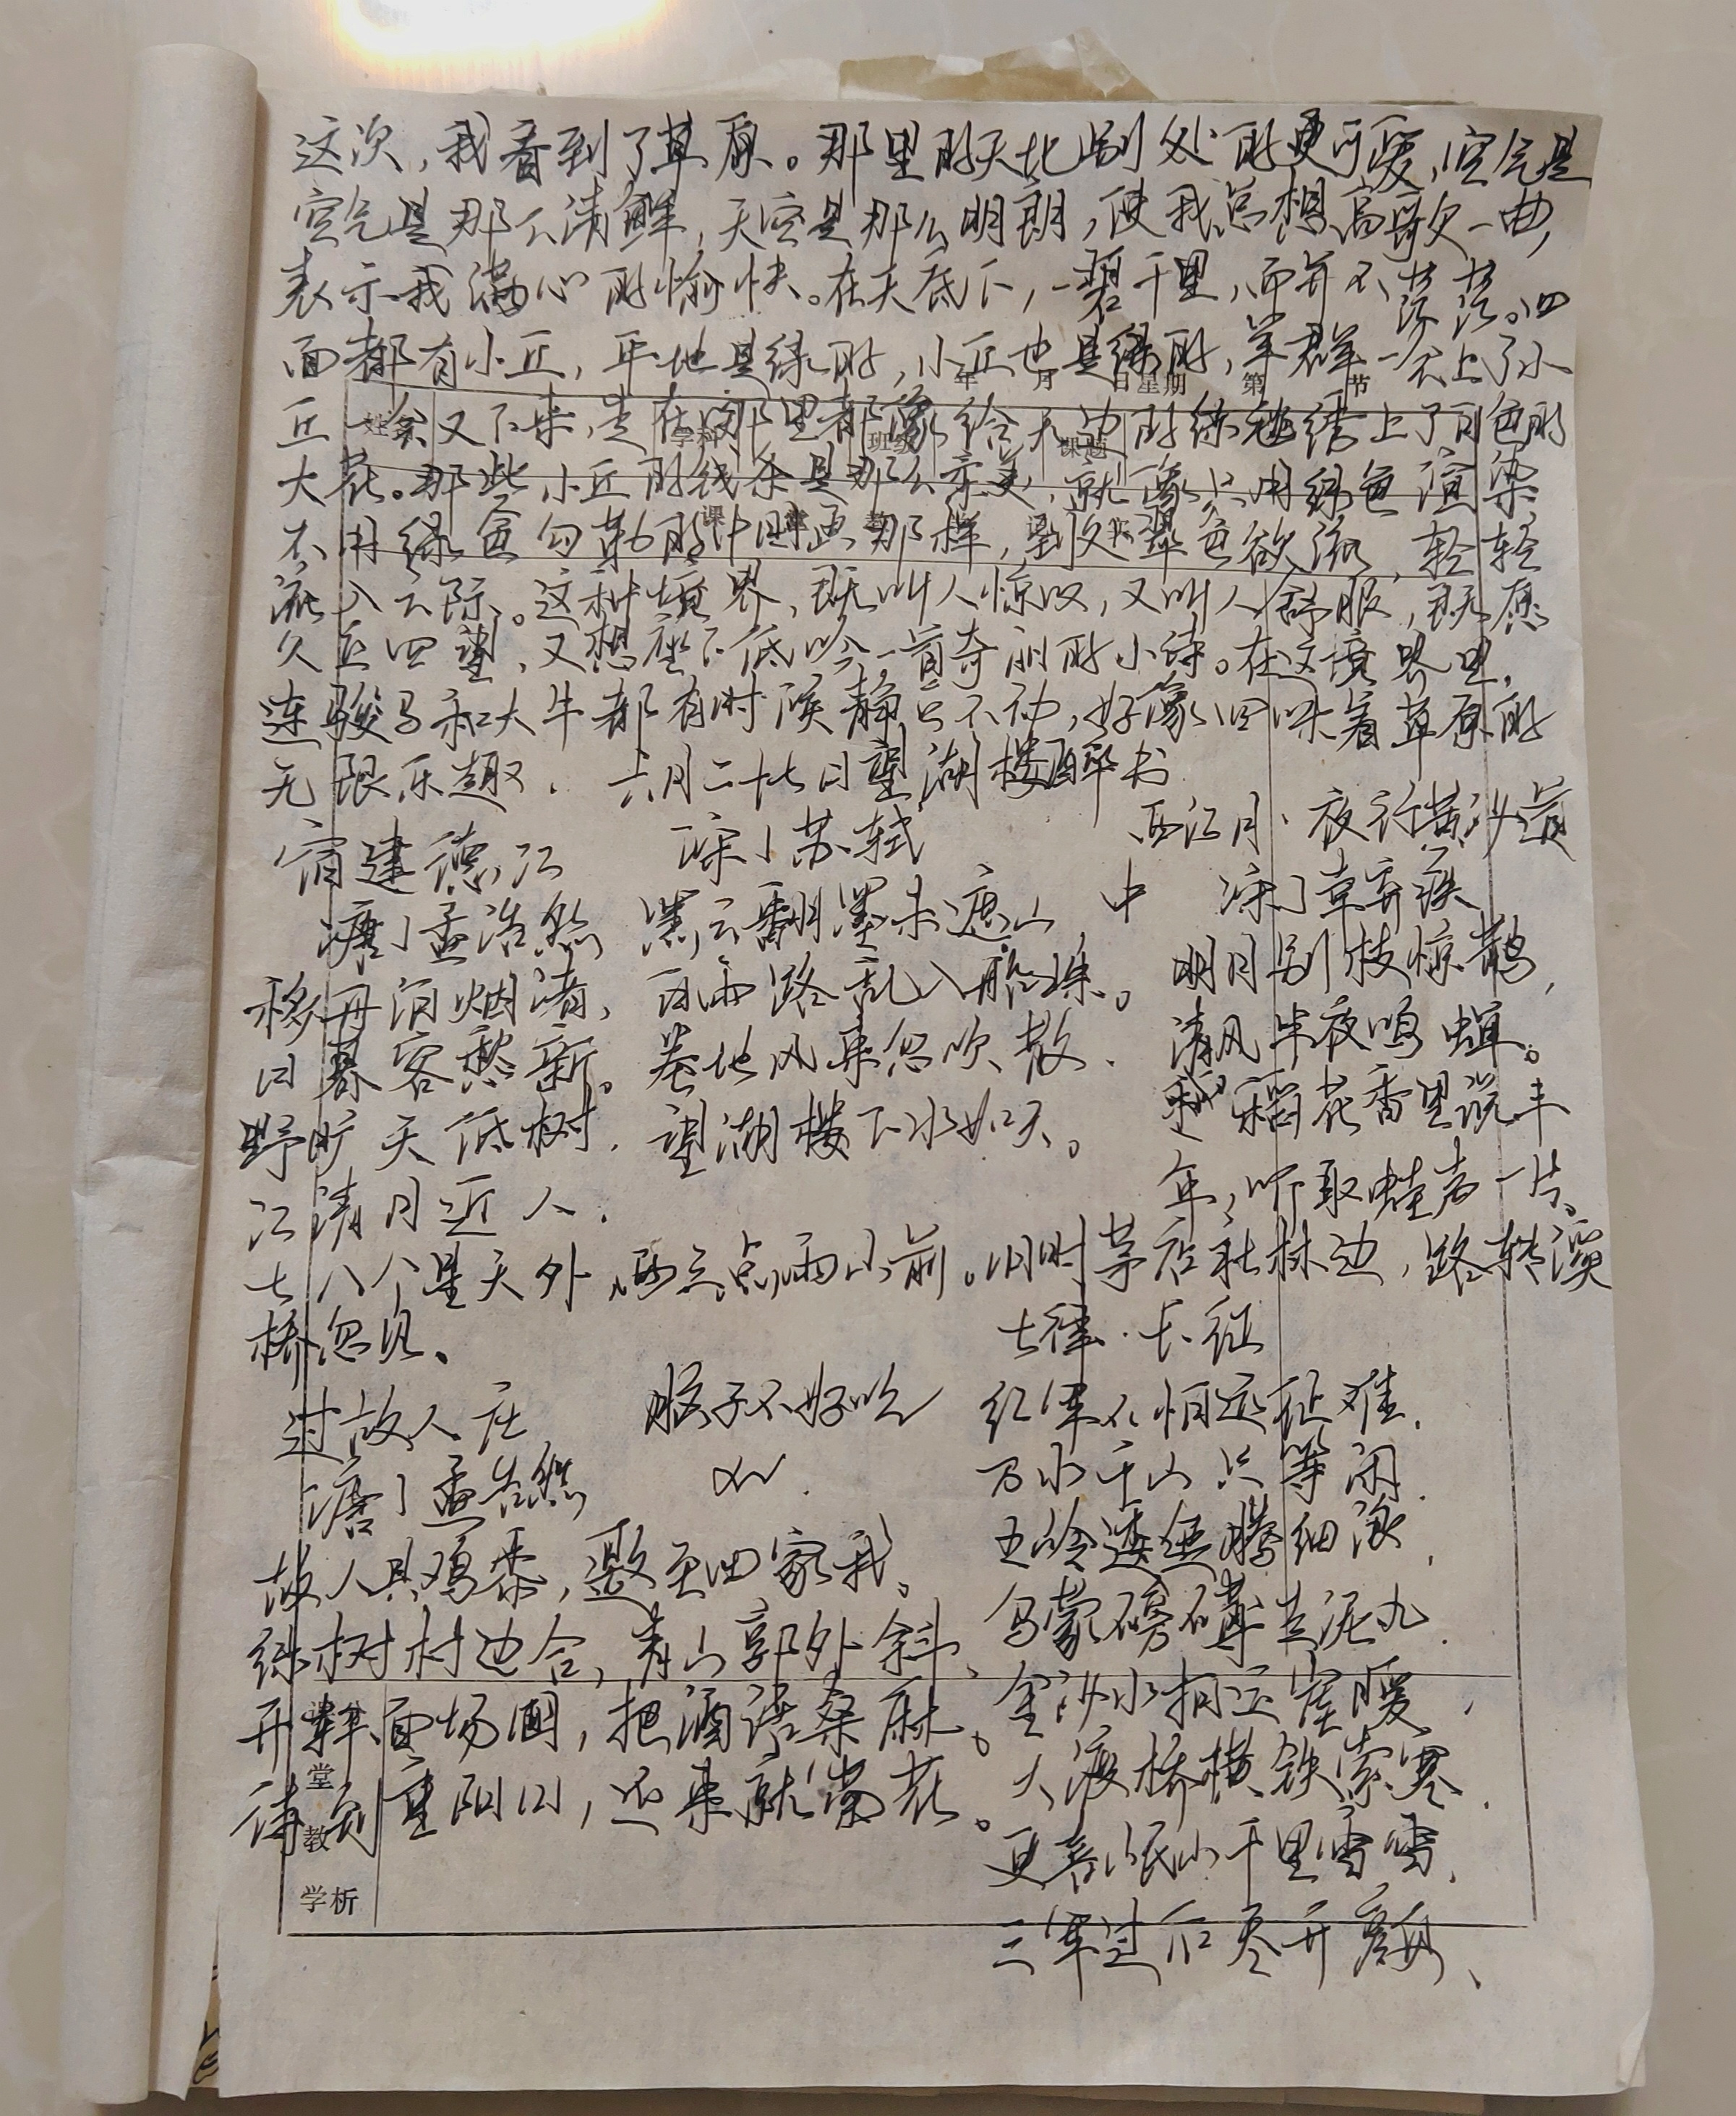 这次,我看到了草原。那里的天比别处的更可爱,空气是
空气是那么清鲜,天空是那么明朗,使我总想高歌一曲,
表示我满心的愉快。在天底下,一碧千里,而并不茫茫。四
面都有小丘,平地是绿的,小丘也是绿的,羊群一会上了小
年 月 日 星期 第 节
丘一会又下来,走在哪里都像给无边的绿毯绣上了白色的
姓名 学科 班级 课题
大花。那些小丘的线条是那么柔美,就像只用绿色渲染
不用绿色勾勒的中国画那样,到处翠色欲流,轻轻
流入云际。这种境界,既叫人惊叹,又叫人舒服,既愿
久立四望,又想座下低吟一首奇丽的小诗。在这境界里,
连骏马和大牛都有时候静立不动,好像回味着草原的
无限乐趣.
六月二十七日望湖楼醉书
宋丨苏轼
黑云翻墨未遮山
白雨跳乱入船珠。
卷地风来忽吹散.
望湖楼下水如天。
宿建德江
唐丨孟浩然
移舟泊烟渚,
日暮客愁新。
野旷天低树.
江清月近人.
西江月·夜行黄沙道
中 宋丨辛弃疾
明月别枝惊鹊,
清风半夜鸣蝉。
稻花香里说丰
年,听取蛙声一片。
七八个星天外,两三点雨山前。旧时茅店社林边,路转溪
桥忽见、
过故人庄
唐丨孟浩然
故人具鸡黍,邀至田家我。
绿树村边合,青山郭外斜、
开轩面场圃,把酒话桑麻。
待到重阳日,还来就菊花。
脑子不好吃
七律·长征
红军不怕远征难.
万水千山只等闲.
五岭逶迤腾细浪,
乌蒙磅礴走泥丸.
金沙水拍云崖暖,
大渡桥横铁索寒.
更喜岷山千里雪,
三军过后尽开颜、
堂
教
学析